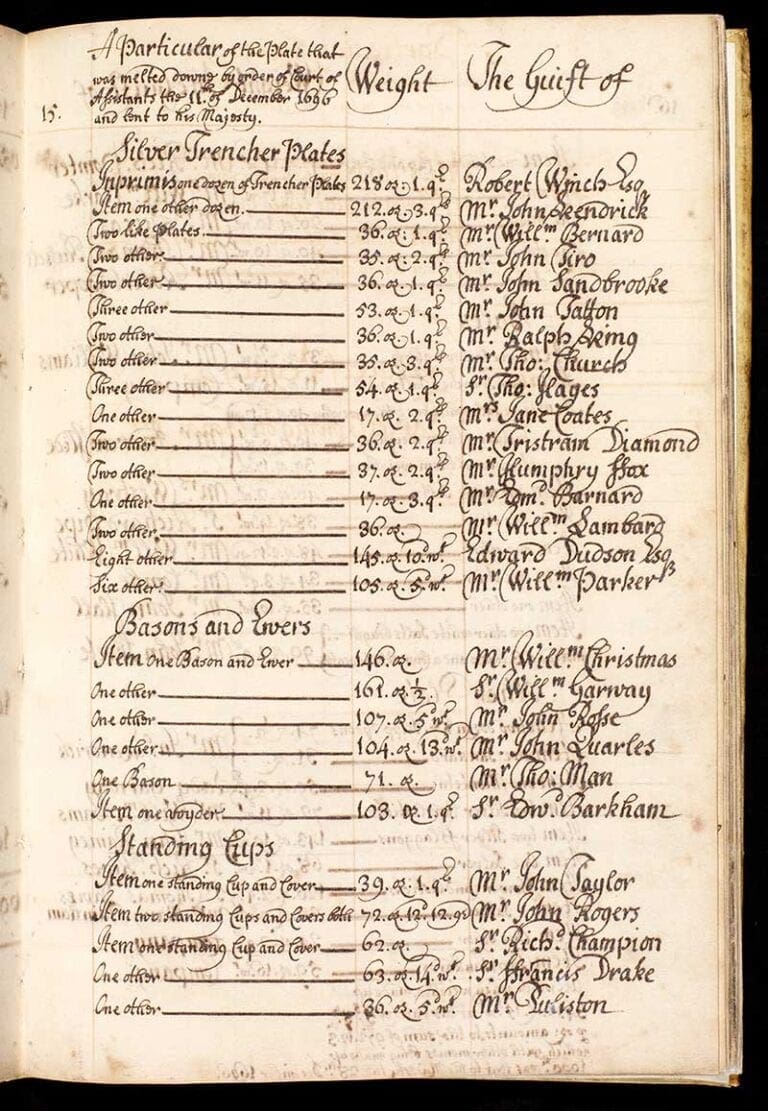 A Particular of the Plate that
was melted downe by order of Court of
Assistants the 11th. of December 1696
15. and lent to his Majesty.
Weight The Guift of
Silver Trencher Plates
Inprimis one dozen of Trencher Plates 218 oz: 1. qr. Robert Winch Esq.
Item one other dozen. 212. oz. 3. qr. Mr. John Kendrick
Two like Plates. 36. oz: 1. qr. Mr. Willm. Bernard
Two other 35. oz: 2. qr. Mr. John Tiro
Two other 36. oz. 1. qr. Mr. John Sandbrooke
Three other 53. oz. 1. qr. Mr. John Tatton
Two other 36. oz. 1. qr. Mr. Ralph King
Two other 35. oz. 3. qr. Mr. Tho: Church
Three other 54. oz. 1. qr. Sr. Tho: Hages
One other 17. oz. 2. qr. Mrs. Jane Coates
Two other 36. oz. 2. qr. Mr. Tristram Diamond
Two other 37. oz. 2. qr. Mr. Humphry ffox
One other 17. oz. 3. qr. Mr. Edm. Barnard
Two other. 36. oz. Mr. Willm. Lambard
Eight other 145. oz. 10. wt. Edward Dudson Esq
Six other 105. oz. 5. wt. Mr. Willm. Parker
Basons and Ewers
Item one Bason and Ewer 146. oz. Mr. Willm. Christmas
One other 161. oz. ½. Sr. Willm. Garway
One other 107. oz. 5. wt. Mr. John Rosse
One other 104. oz. 13. wt. Mr. John Quarles
One Bason 71. oz. Mr. Tho: Man
Item one voyder 103. oz. 1. qr. Sr. Edwd. Barkham
Standing Cups
Item one standing Cup and Cover 39. oz. 1. qr. Mr. John Taylor
Item two standing Cups and Covers both 72. oz. 12. 12. gr. Mr. John Rogers
Item one standing Cup and Cover 62. oz. Sr. Richd. Champion
One other 63. oz. 14. wt. Sr. ffrancis Drake
One other 36. oz. 5. wt. Mr. Puliston